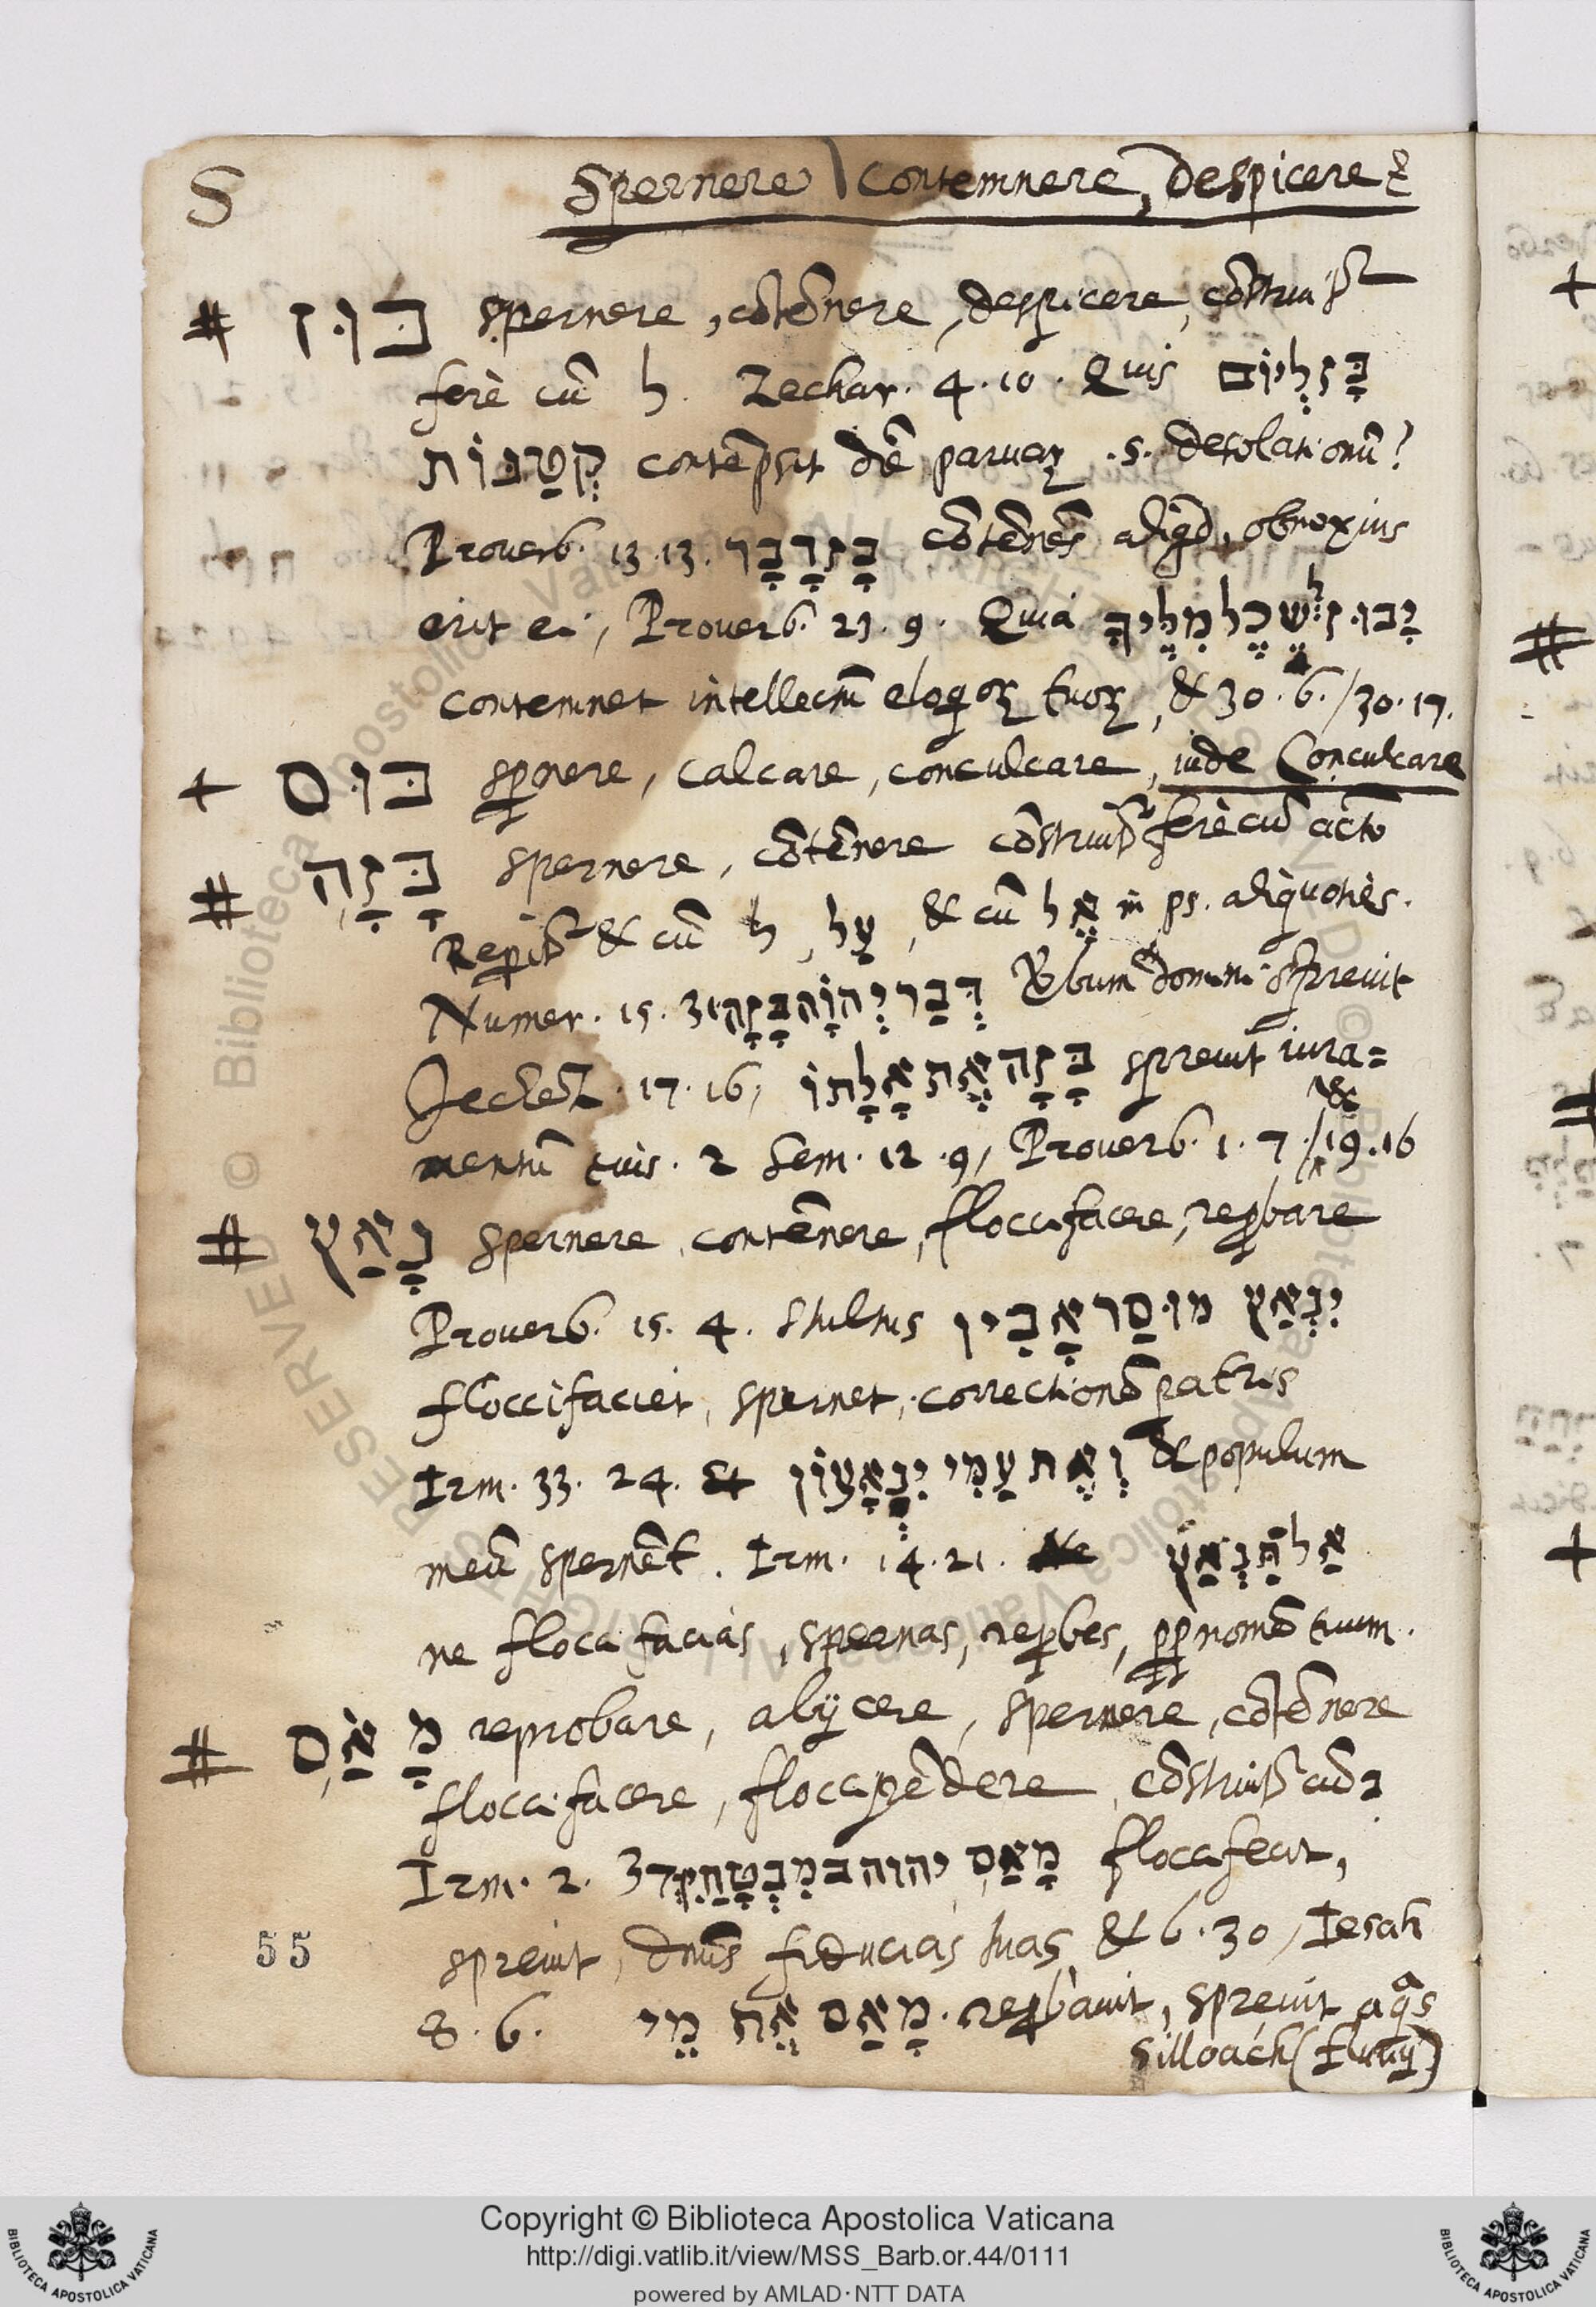 S Spernere contemnere, Despicere &
# בּוּז spernere, cōtēnere, despicere, cōstruit²
ferè cū ל Zechar. 4.10. Quis בָּז לְיוֹם
קְטַנּוֹת contēpsit diē paruaꝝ .s. desolationū?
Prouerb. 13.13. בָּז דָבָר cōtēnēs aliqd, obnoxius
erit ei, Prouerb. 23.9. Quia יָבוּז לְשֵׂכֶל מִלֶּיךָ
contemnet intellectū eloqioꝝ tuoꝝ, & 30.6./30.17.
+ בּוּס spernere, calcare, conculcare, uide Conculcare
# בָּזָה spernere, cōtēnere cōstruit² ferè cū acto
Reperit² & cū ל, עַל, & cū אֶל in ps. aliquoties.
Numer. 15.31 דְּבַר יְהוָֹה בָּזָה Verbum domini spreuit
Jechez. 17.16, בָּזָה אֶת אָלָתוֹ spreuit iura=
mentū eius. 2 Sem. 12.9, Prouerb. 1.7./& 19.16
# נָאַץ spernere, contēnere, floccifacere, reꝓbare
Prouerb. 15. 4. Stultus יִנְאַץ מוּסַר אָבִין
floccifaciet, spernet, correctionē patris
Irm. 33. 24. וְאֶת עַמִּי יִנְאָצוּן & populum
meū spernēt. Irm. 14.21. אַל תִּנְאַץ
ne flocci facias, spernas, reꝓbes, ꝓp nomē tuum.
# מָאַס reprobare, abijcere, spernere, cōtēnere
floccifacere, floccipēdere, cōstruit² cū ב
Irm. 2. 3 מָאַס יהוה בְּמִבְטָחַיִךְ floccifecit,
spreuit, dnūs fiducias tuas & 6.30, Iesah
8.6. מָאַס אֶת מֵי reꝓbauit, spreuit aqas
Silloach (fluuij)
55
Copyright © Biblioteca Apostolica Vaticana
http://digi.vatlib.it/view/MSS_Barb.or.44/0111
powered by AMLAD·NTT DATA
BIBLIOTECA APOSTOLICA VATICANA
BIBLIOTECA APOSTOLICA VATICANA